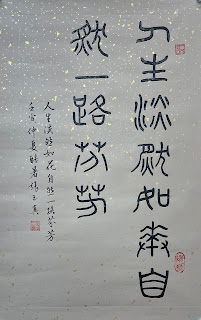 人生淡然如華自
然一路芬芳
人生淡然如花自然一路芬芳
壬寅仲夏 楊玉